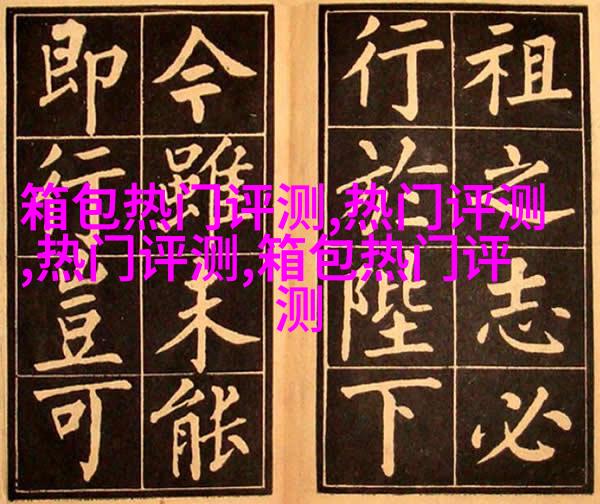 祖之志必
行於陛下
今雖未能
即行豈可
箱包热门评测,热门评测
,热门评测,箱包热门评
测